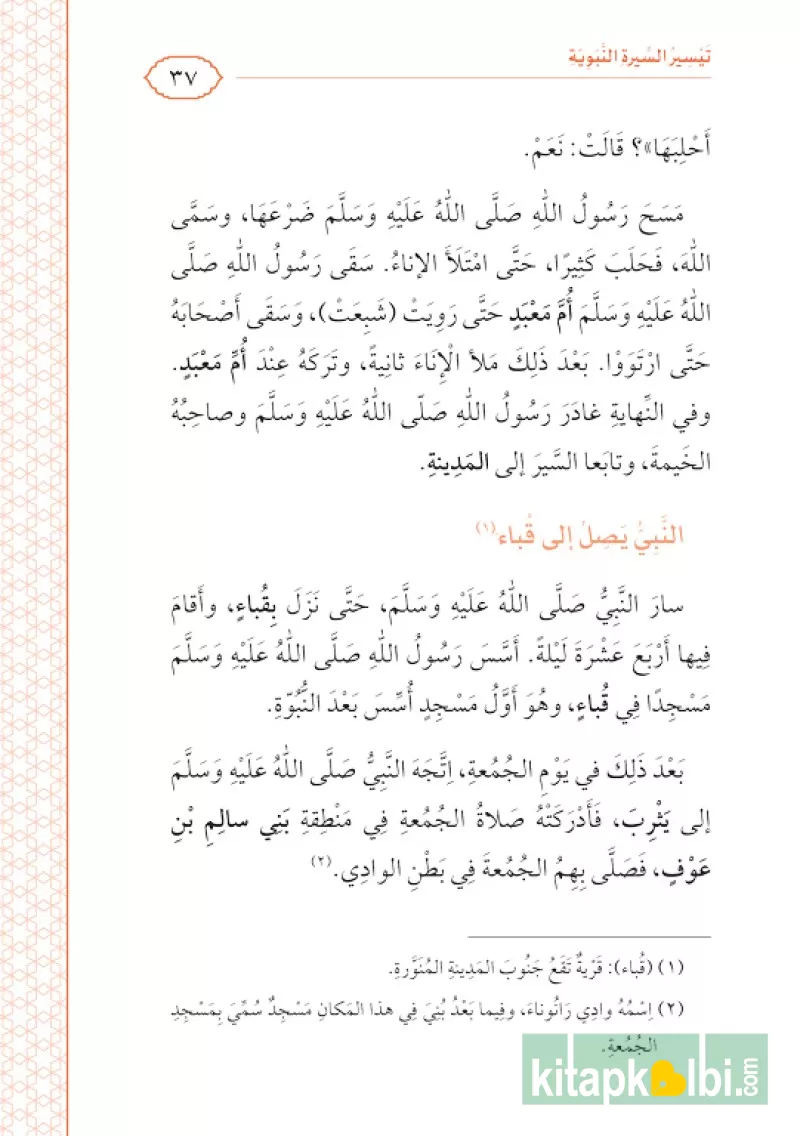 تَيْسِيرُ السِّيرةِ النَّبَوِيَة
٣٧
أَحْلِبَهَا»؟ قَالَتْ: نَعَمْ.
مَسَحَ رَسُولُ اللهِ صَلَّى اللهُ عَلَيْهِ وَسَلَّمَ ضَرْعَهَا، وسَمَّى
اللهَ، فَحَلَبَ كَثِيرًا، حَتَّى امْتَلَأَ الإناءُ. سَقَى رَسُولُ اللهِ صَلَّى
اللهُ عَلَيْهِ وَسَلَّمَ أُمَّ مَعْبَدٍ حَتَّى رَوِيَتْ (شَبِعَتْ)، وَسَقَى أَصْحَابَهُ
حَتَّى ارْتَوَوْا. بَعْدَ ذَلِكَ مَلأ الْإِنَاءَ ثانِيةً، وتَرَكَهُ عِنْدَ أُمِّ مَعْبَدٍ.
وفي النِّهايةِ غادَرَ رَسُولُ اللهِ صَلّى اللهُ عَلَيْهِ وَسَلَّمَ وصاحِبُهُ
الخَيمةَ، وتابَعا السَّيرَ إلى المَدِينةِ.
النَّبِيُّ يَصِلُ إلى قُباء(١)
سارَ النَّبِيُّ صَلَّى اللهُ عَلَيْهِ وَسَلَّمَ، حَتَّى نَزَلَ بِقُباءٍ، وأَقامَ
فِيها أَرْبَعَ عَشْرَةَ لَيْلةً. أَسَّسَ رَسُولُ اللهِ صَلَّى اللهُ عَلَيْهِ وَسَلَّمَ
مَسْجِدًا فِي قُباءٍ، وهُوَ أَوَّلُ مَسْجِدٍ أُسِّسَ بَعْدَ النُّبُوّةِ.
بَعْدَ ذَلِكَ في يَوْمِ الجُمُعةِ، اِتَّجَهَ النَّبِيُّ صَلَّى اللهُ عَلَيْهِ وَسَلَّمَ
إلى يَثْرِبَ، فَأَدْرَكَتْهُ صَلاةُ الجُمُعةِ فِي مَنْطِقةِ بَنِي سالِمِ بْنِ
عَوْفٍ، فَصَلَّى بِهِمُ الجُمُعةَ فِي بَطْنِ الوادِي.(٢)
(١) (قُباء): قَرْيةٌ تَقَعُ جَنُوبَ المَدِينةِ المُنَوَّرةِ.
(٢) اِسْمُهُ وادِي رَانُوناءَ، وفِيما بَعْدُ بُنِيَ فِي هذا المَكانِ مَسْجِدٌ سُمِّيَ بِمَسْجِدِ
الجُمُعةِ.
kitapkalbi.com